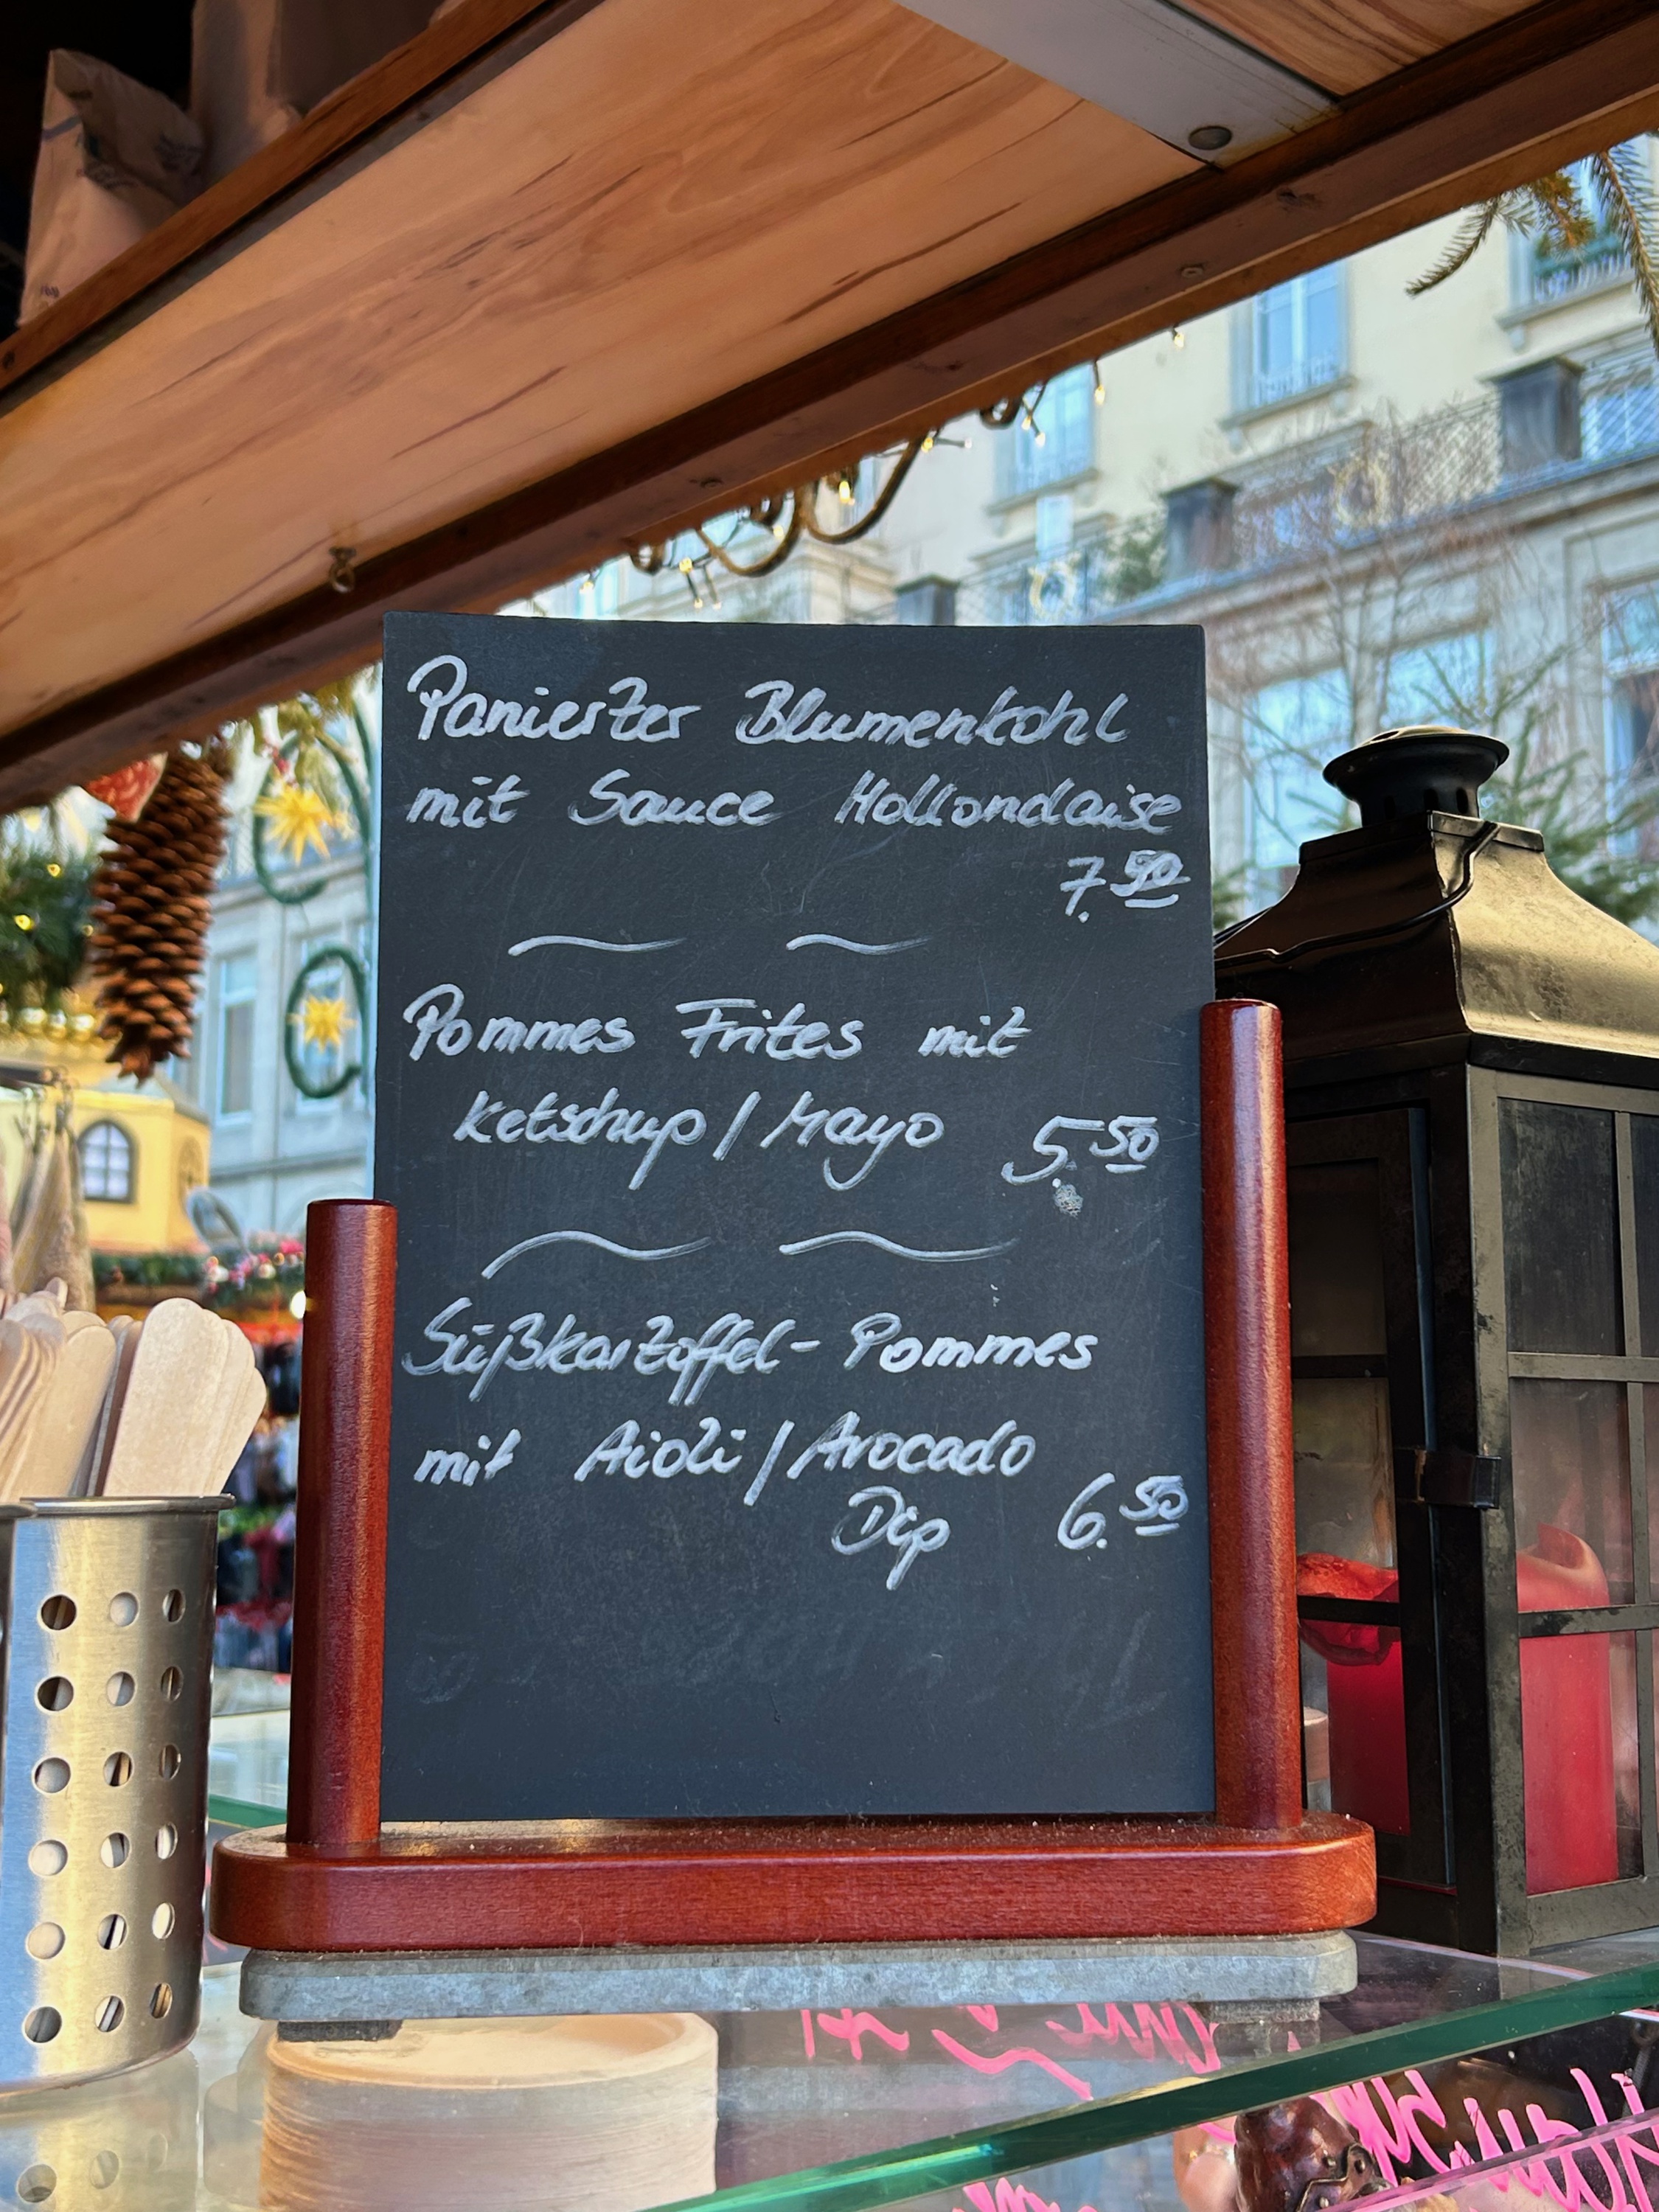 Panierter Blumenkohl
mit Sauce Hollondaise
7.50
Pommes Frites mit
Ketschup/Mayo 5.50
Süßkartoffel-Pommes
mit Aioli/Avocado
Dip 6.50